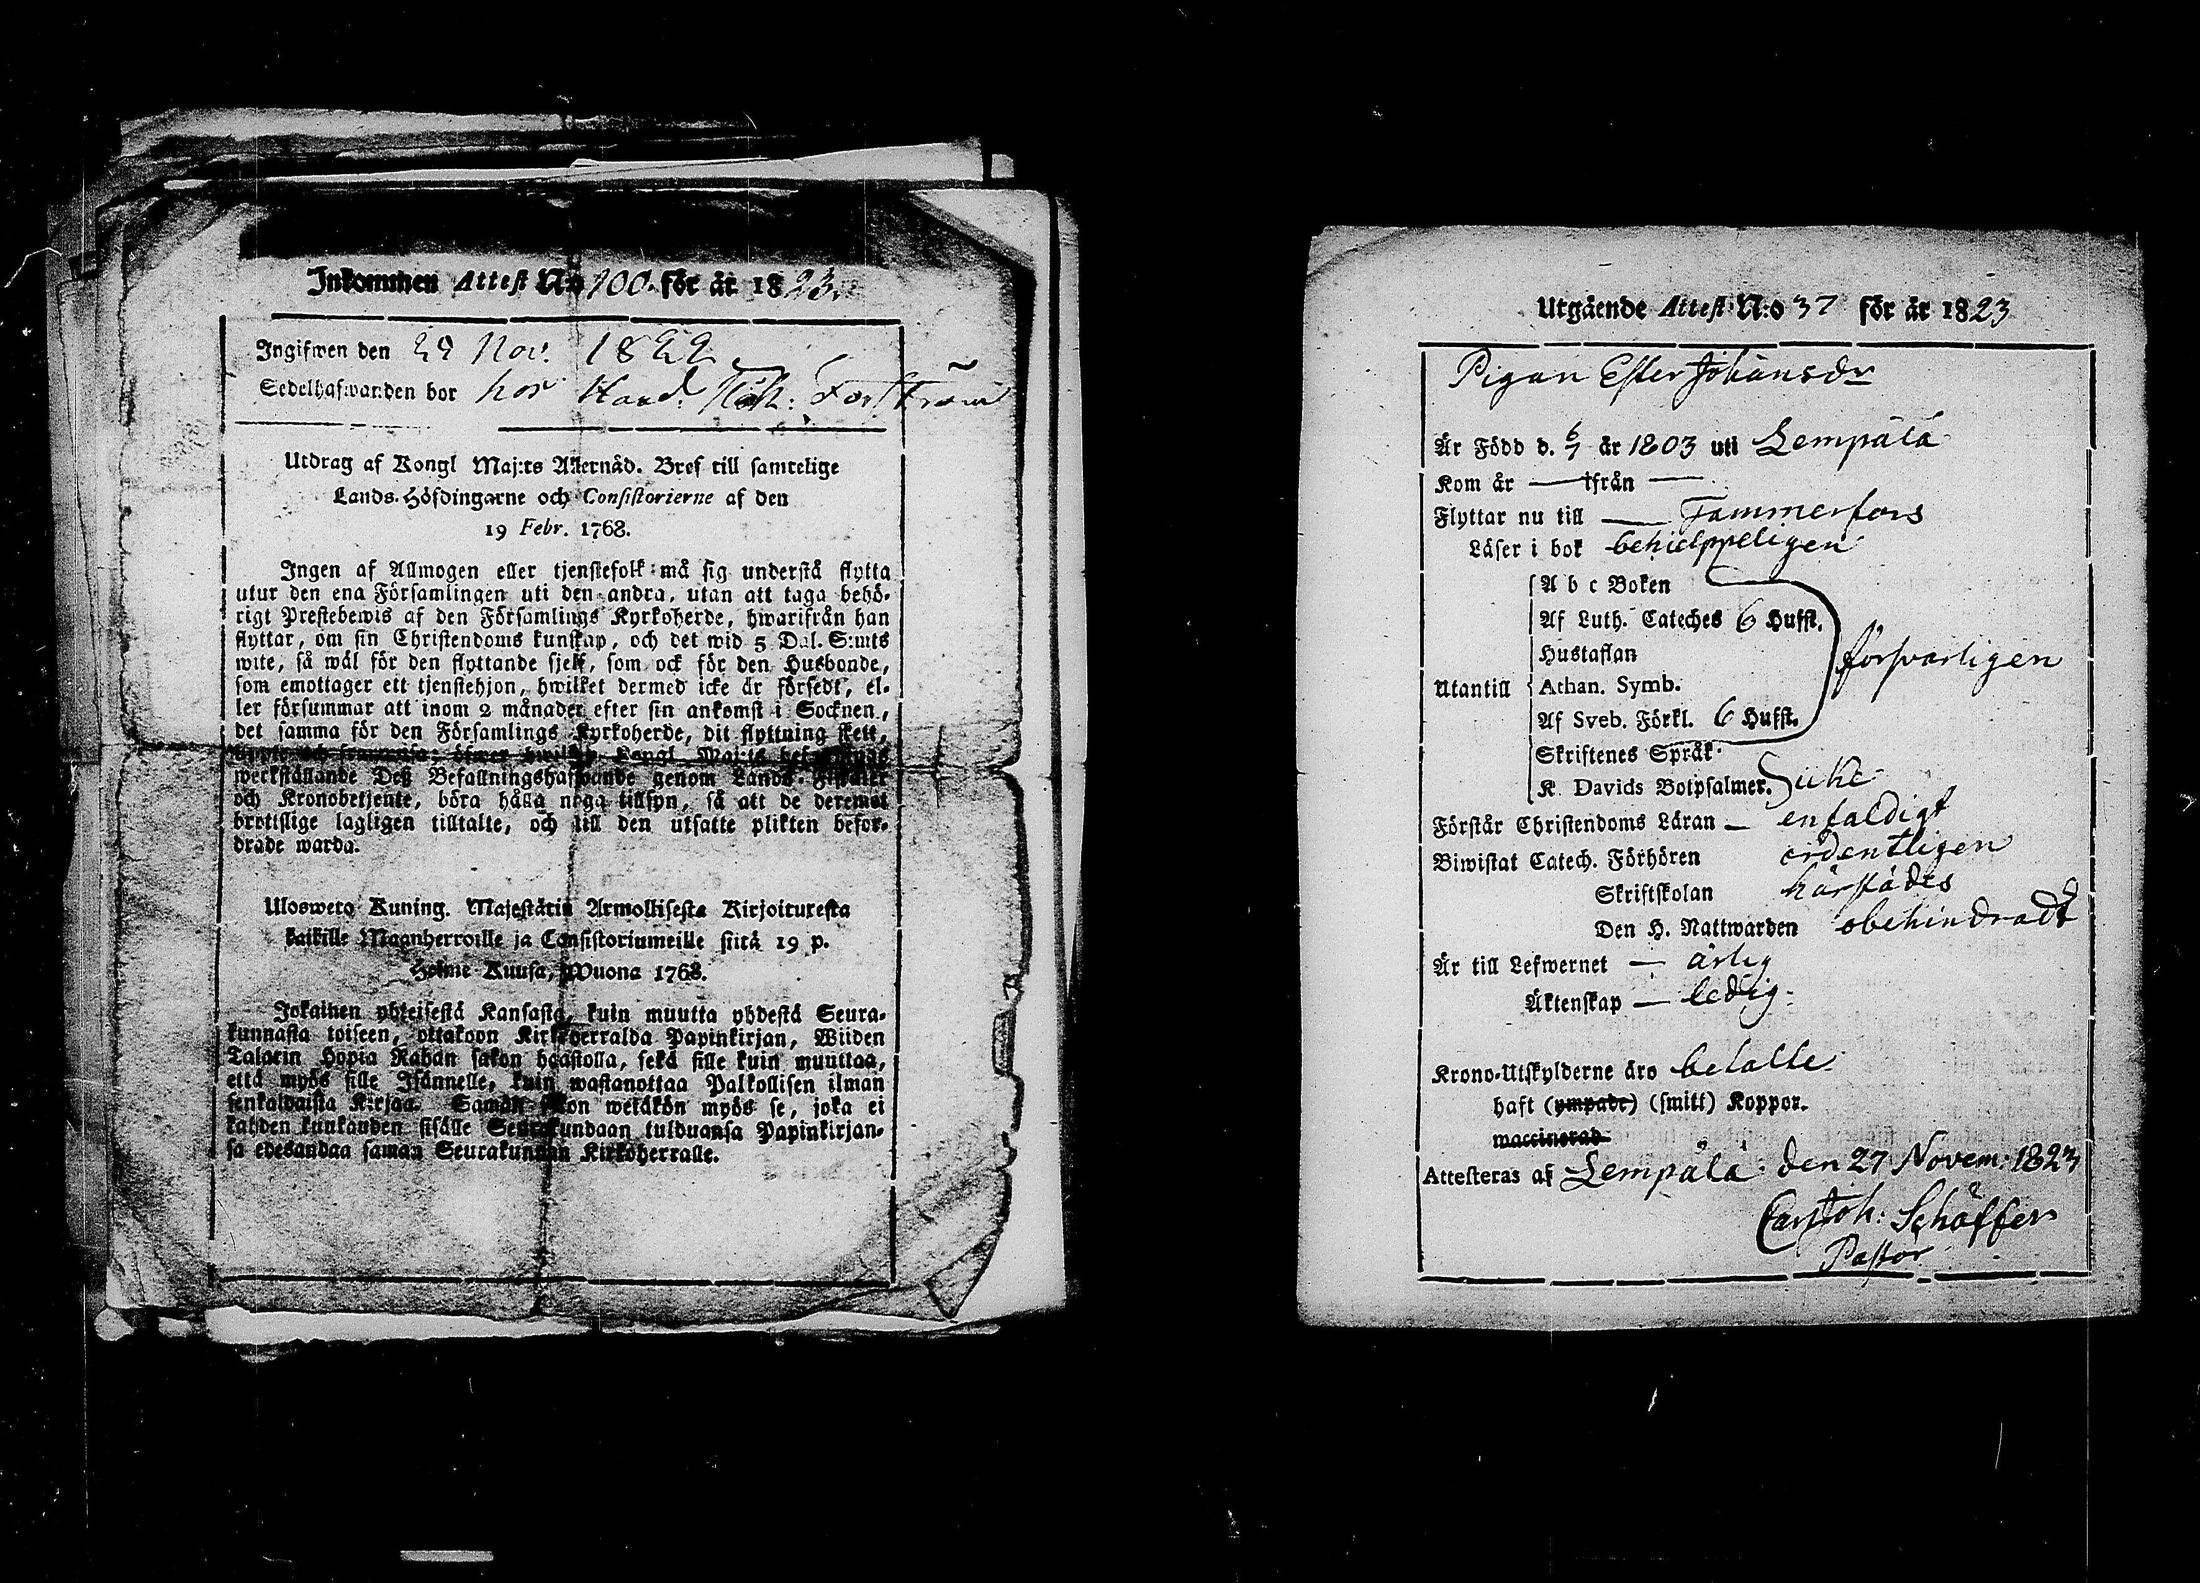 Inkommen Attest No 100. för år 1823.
Ingifwen den 29 Nov. 1822
Sedelhafwanden bor hos Hand. Forsström
Utdrag af Kongl Maj:ts Allernåd. Bref till samtelige
Lands-Höfdingarne och Consistorierne af den
19 Febr. 1768.
Ingen af Allmogen eller tjenstefolk må sig understå flytta
utur den ena Församlingen uti den andra, utan att taga behö-
rigt Prestebewis af den Församlings Kyrkoherde, hwarifrån han
flyttar, om sin Christendoms kunskap, och det wid 5 Dal. S:mts
wite, så wäl för den flyttande sjelf, som ock för den Husbonde,
som emottager ett tjenstehjon, hwilket dermed icke är försedt, el-
ler försummar att inom 2 månader efter sin ankomst i Socknen,
det samma för den Församlings Kyrkoherde, dit flyttning skett,
werkställande Deß Befallningshafwande genom Lands-Fiskaler
och Kronobetjente, böra hålla noga tillsyn, så att de deremot
brottslige lagligen tilltalte, och till den utsatte plikten befor-
drade warda.
Ulosweto Kuning. Majestätin Armollisesta Kirjoituxesta
kaikille Maanherroille ja Consistoriumeille siitä 19 p.
Helme Kuusa, Wuona 1768.
Jokainen yhteisestä Kansasta, kuin muutta yhdestä Seura-
kunnasta toiseen, ottakoon Kirkkoherralda Papinkirjan, Wiiden
Talarin Hopia Rahan sakon haastolla, sekä sille kuin muuttaa,
että myös sille Isännelle, kuin wastanottaa Palkollisen ilman
senkaldaista Kirjaa. Saman sakon wetäkön myös se, joka ei
kahden kuukauden sisälle Seurakundaan tulduansa Papinkirjan-
sa edesandaa saman Seurakunnan Kirkkoherralle.
Utgående Attest N:o 37 för år 1823
Pigan Ester Johansdr
Är Född d. 6/7 år 1803 uti Lempälä
Kom år — ifrån —
Flyttar nu till — Tammerfors
Läser i bok behielppeligen
A b c Boken
Af Luth. Cateches 6 Hufst.
Hustaflan
försvarligen
Utantill Athan. Symb.
Af Sveb. Förkl. 6 Hufst.
Skriftenes Språk
K. Davids Botpsalmer. icke
Förstår Christendoms Läran — enfaldigt
Biwistat Catech. Förhören ordentligen
Skriftskolan härstädes
Den H. Nattwarden obehindradt
Är till Lefwernet — ärlig
Äktenskap — ledig.
Krono-Utskylderne äro betalte
haft (ympade) (smitt) Koppor.
waccinerad.
Attesteras af Lempälä den 27 Novem: 1823
Carl Joh: Schöffer
Pastor